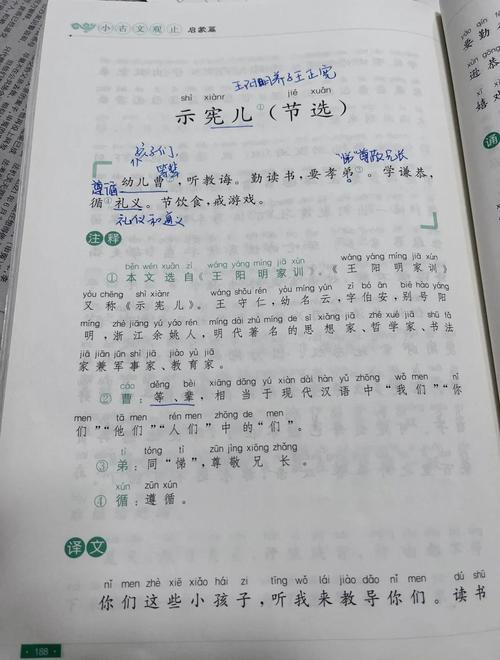 小古文观止 启蒙篇
王阳明养子王正宪
shì xiànr jié xuǎn
示宪儿①（节选）
孩子们,
你
等辈
"悌"尊敬兄长
遵循
幼儿曹②，听教诲。勤读书，要孝弟③。学谦恭，
循④礼义。节饮食，戒游戏。
礼仪和道义
注释
běn wén xuǎn zì wáng yáng míng jiā xùn wáng yáng míng jiā xùn
①本文选自《王阳明家训》。《王阳明家训》
yòu chēng shì xiànr wáng shǒu rén yòu míng yún zì bó ān bié hào yáng
又称《示宪儿》。王守仁，幼名云，字伯安，别号阳
míng zhè jiāng yú yáo rén míng dài zhù míng de sī xiǎng jiā zhé xué jiā shū fǎ
明，浙江余姚人，明代著名的思想家、哲学家、书法
jiā jiān jūn shì jiā jiào yù jiā
家兼军事家、教育家。
cáo děng bèi xiāng dāng yú xiàn dài hàn yǔ zhōng wǒ men nǐ
②曹：等、辈，相当于现代汉语中"我们""你
men tā men rén men zhōng de men
们""他们""人们"中的"们"。
tì tóng tì zūn jìng xiōng zhǎng
③弟：同"悌"，尊敬兄长。
xún zūn xún
④循：遵循。
译文
nǐ men zhè xiē xiǎo hái zi tīng wǒ lái jiào dǎo nǐ men dú shū
你们这些小孩子，听我来教导你们。读书
188